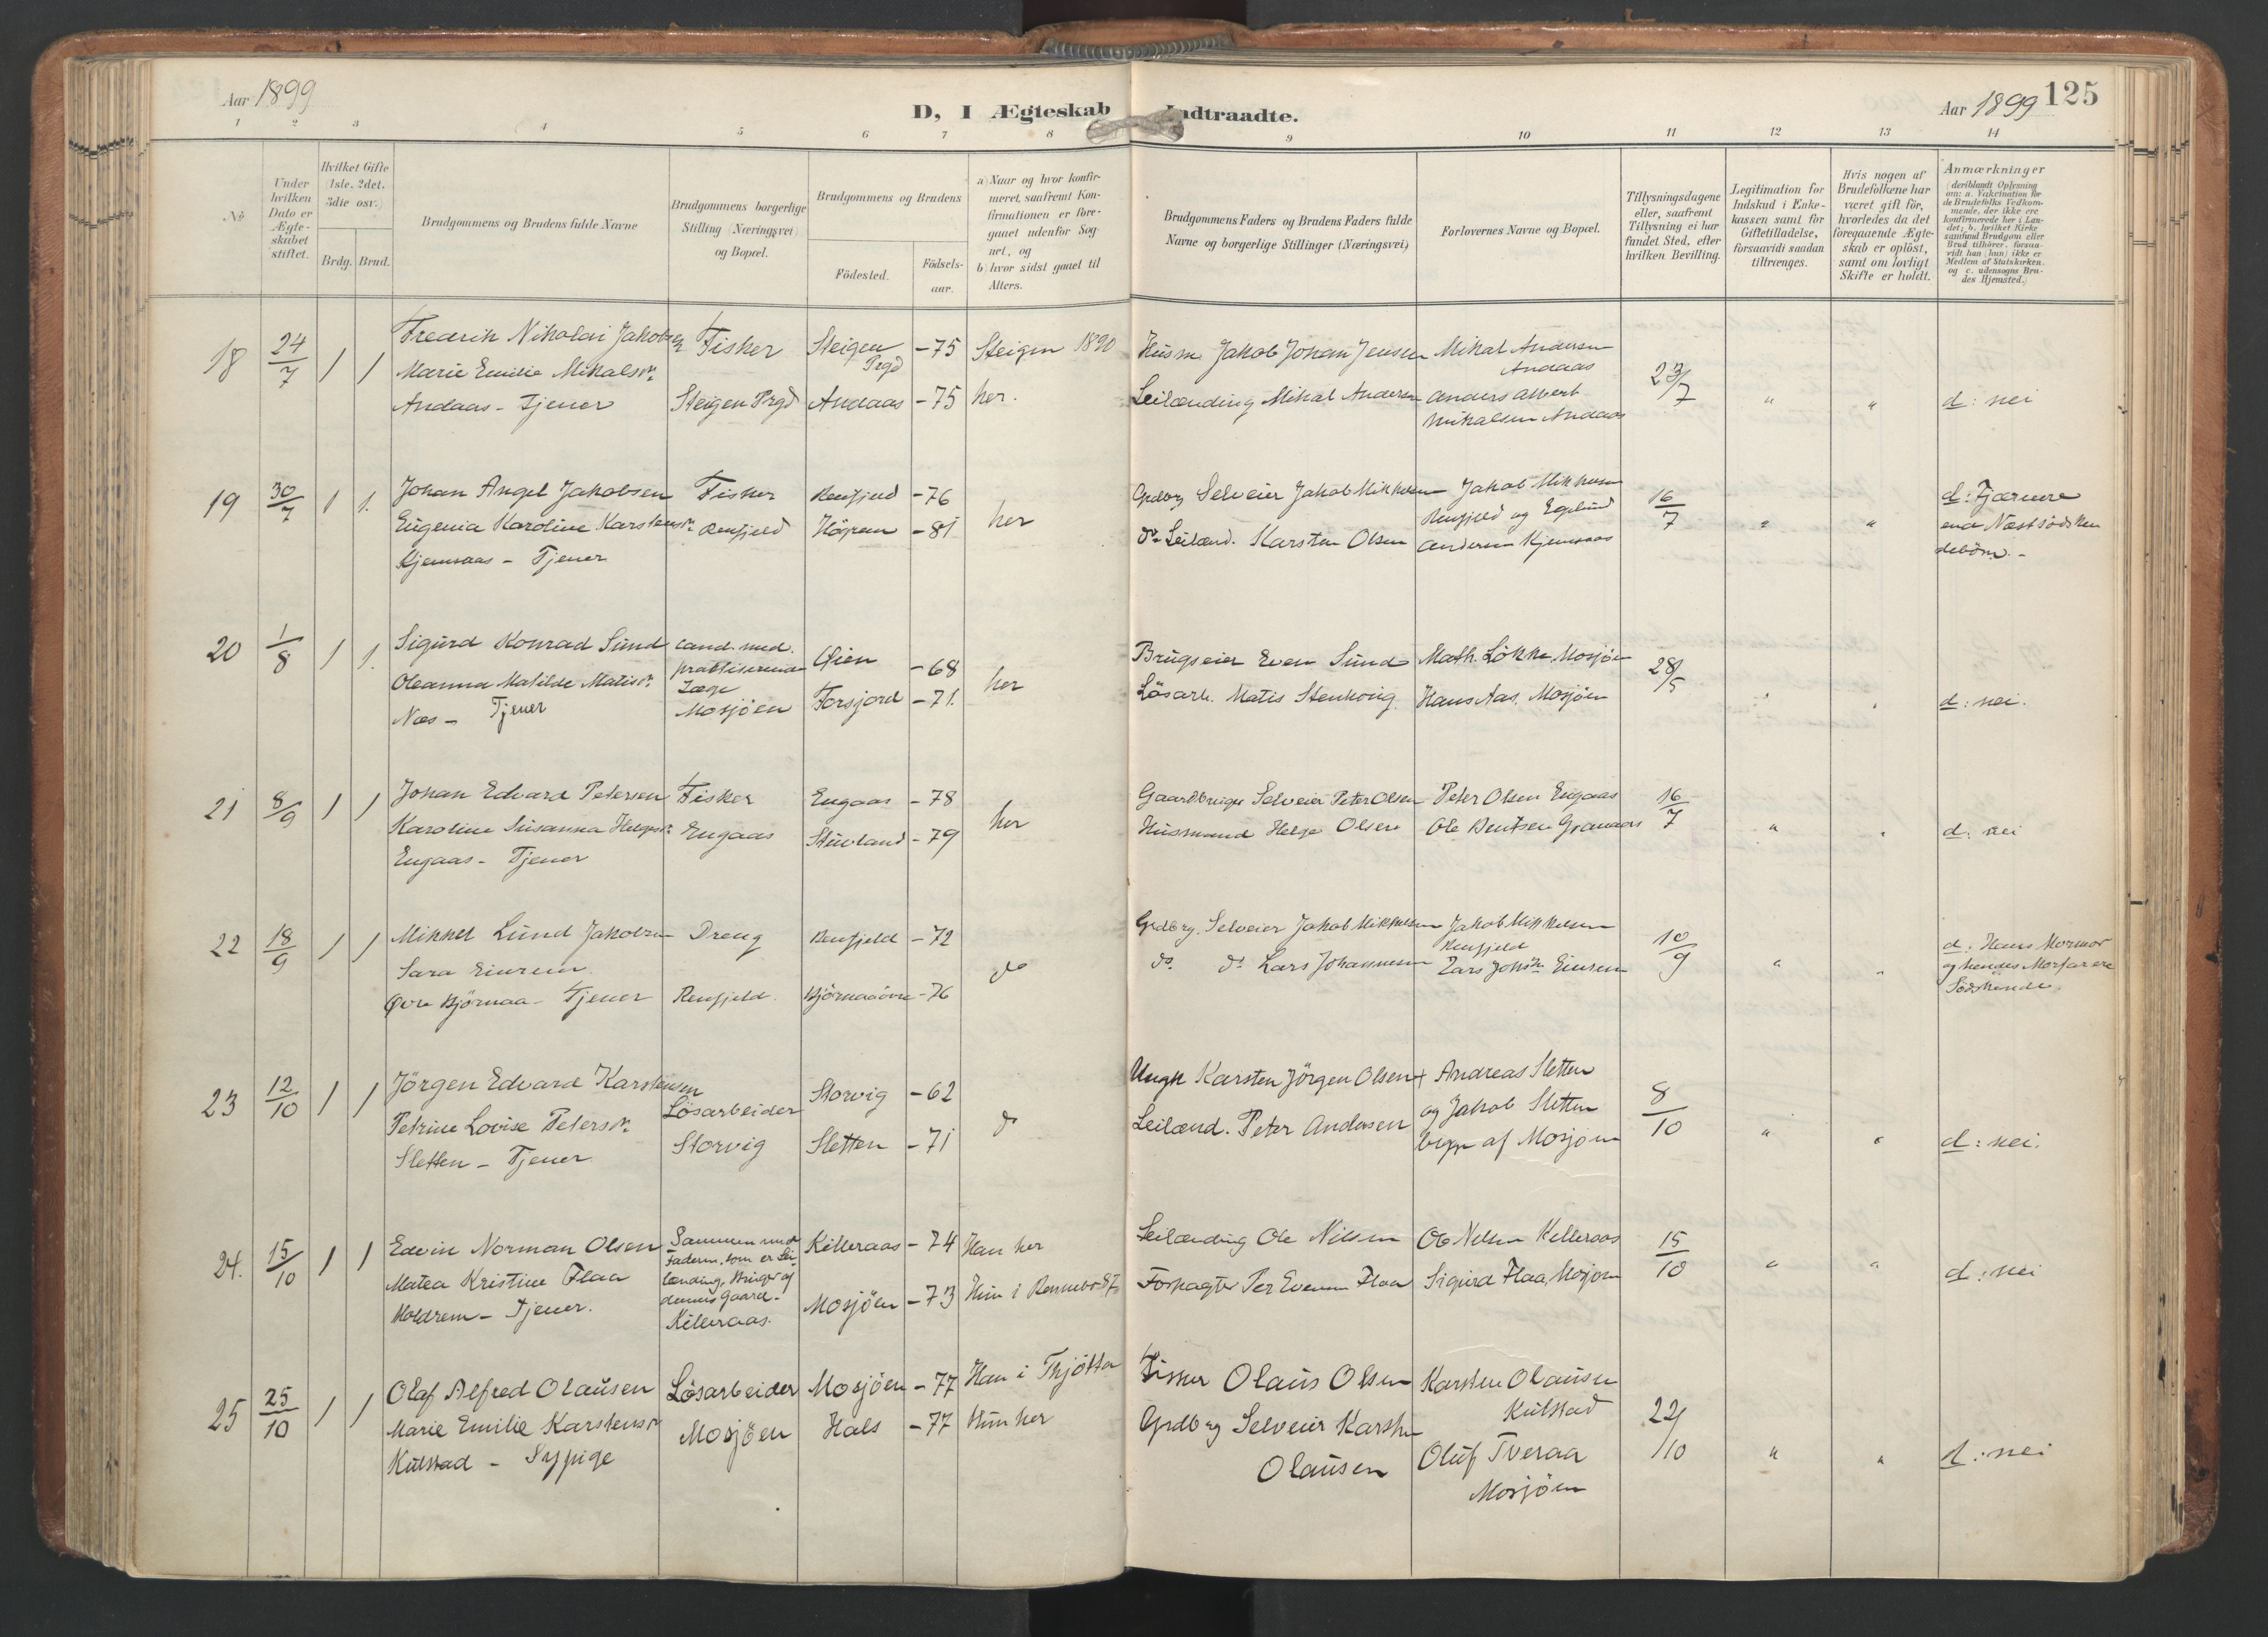 Aar 1899
D, I Ægteskab Indtraadte.
Aar 1899 125
1 2 3 4 5 6 7 8 9 10 11 12 13 14
No
Under hvilken Dato er Ægteskabet stiftet.
Hvilket Gifte (1ste. 2det. 3die osv.)
Brdg. Brud.
Brudgommens og Brudens fulde Navne
Brudgommens borgerlige Stilling (Næringsvei) og Bopæl.
Brudgommens og Brudens
Födested.
Födselsaar.
a) Naar og hvor konfirmeret, saafremt Konfirmationen er foregaaet udenfor Sognet, og
b) hvor sidst gaaet til Alters.
Brudgommens Faders og Brudens Faders fulde Navne og borgerlige Stillinger (Næringsvei)
Forlovernes Navne og Bopæl.
Tillysningsdagene eller, saafremt Tillysning ei har fundet Sted, efter hvilken Bevilling.
Legitimation for Indskud i Enkekassen samt for Giftetilladelse, forsaavidt saadan tiltrænges.
Hvis nogen af Brudefolkene har været gift för, hvorledes da det foregaaende Ægteskab er oplöst, samt om lovligt Skifte er holdt.
Anmærkninger
(deriblandt Oplysning om: a. Vakcination for de Brudefolks Vedkommende, der ikke ere konfirmerede her i Landet; b. hvilket Kirkesamfund Brudgom eller Brud tilhörer, forsaavidt han (hun) ikke er Medlem af Statskirken. og c. udensogns Brudes Hjemsted.)
18 24/7 1 1
Fredrik Nikolai Jakobsen Fisker Steigen Prgd -75 Steigen 1890 Husm. Jakob Johan Jensen Mikal Andersen Andaas
Marie Emilie Mikalsdr.
Andaas - Tjener Steigen Prgd Andaas -75 her. Leilænding Mikal Andersen Anders Albert Mikalsen Andaas 23/7 " " d: nei
19 30/7 1 1.
Johan Angel Jakobsen Fisker Renfjeld -76 Grdbrg Selveier Jakob Mikkelsen Jakob Mikkelsen
Eugenia Karoline Karstensdr. Renfjeld -81 her Renfjeld og
Kjemsaas - Tjener do Leilænd. Karsten Olsen Andersen Kjemsaas 16/7 " " d: Fjærnere end Næstsödskendebörn. -
20 1/8 1 1.
Sigurd Konrad Sund cand. med. praktiserende Læge Øien -68 Brugseier Even Sund Math. Lökke, Mosjöen
Oleanna Matilde Matisdr.
Næs - Tjener Mosjöen Forsjord -71. her Lösarb. Matis Hans Aas, Mosjöen 28/5 " " d: nei.
21 8/9 1 1
Johan Edvard Petersen Fisker Engaas -78 Gaardbruger Selveier Peter Olsen Peter Olsen Engaas
Karoline Susanna Helgesdr. Engaas -79 her Husmand Helge Olsen Ole Bentsen Granaas 16/7 " " d: nei
Engaas - Tjener
22 18/9 1 1
Mikkel Lund Jakobsen Dreng Renfjeld -72 Grdbrg. Selveier Jakob Mikkelsen Jakob Mikkelsen Renfjeld
Sara Einrem do do. do Lars Johannesen Lars Einrem 10/9 " "
Øvre Björnaa - Tjener Renfjeld. Björnaaövre -76 d. Hans Mormor og hendes Morfar ere Södskende.
23 12/10 1 1
Jörgen Edvard Karstensen Lösarbeider Storvig -62 Ungk Karsten Jörgen Olsen + Andreas Sletten og Jakob Sletten
Petrine Lovise Petersdr.
Sletten - Tjener Storvig Sletten -71 do Leilænd. Peter Andersen begge af Mosjöen 8/10 " " d: nei.
24. 15/10 1 1
Edvin Norman Olsen Sammen med Faderen, som er Leilænding, Bruger af dennes Gaard - Killeraas. Killeraas -74 Han her Leilænding Ole Nilsen Ole Nilsen Killeraas
Matea Kristine Flaa
Holdrem - Tjener. Mosjöen -73 Hun i Rennebo Forpagter Per Evensen Flaa Sigurd Flaa, Mosjöen 15/10 " " d: nei
25 25/10 1 1
Olaf Alfred Olausen Lösarbeider Mosjöen -77 Han i Thjötta Fisker Olaus Olsen Karsten Olausen Kulstad
Marie Emilie Karstensdr Mosjöen Hals -77 Hun her Grdbrg Selveier Karsten Olausen Oluf Tveraa Mosjöen 22/10 " " d: nei
Kulstad - Sypige